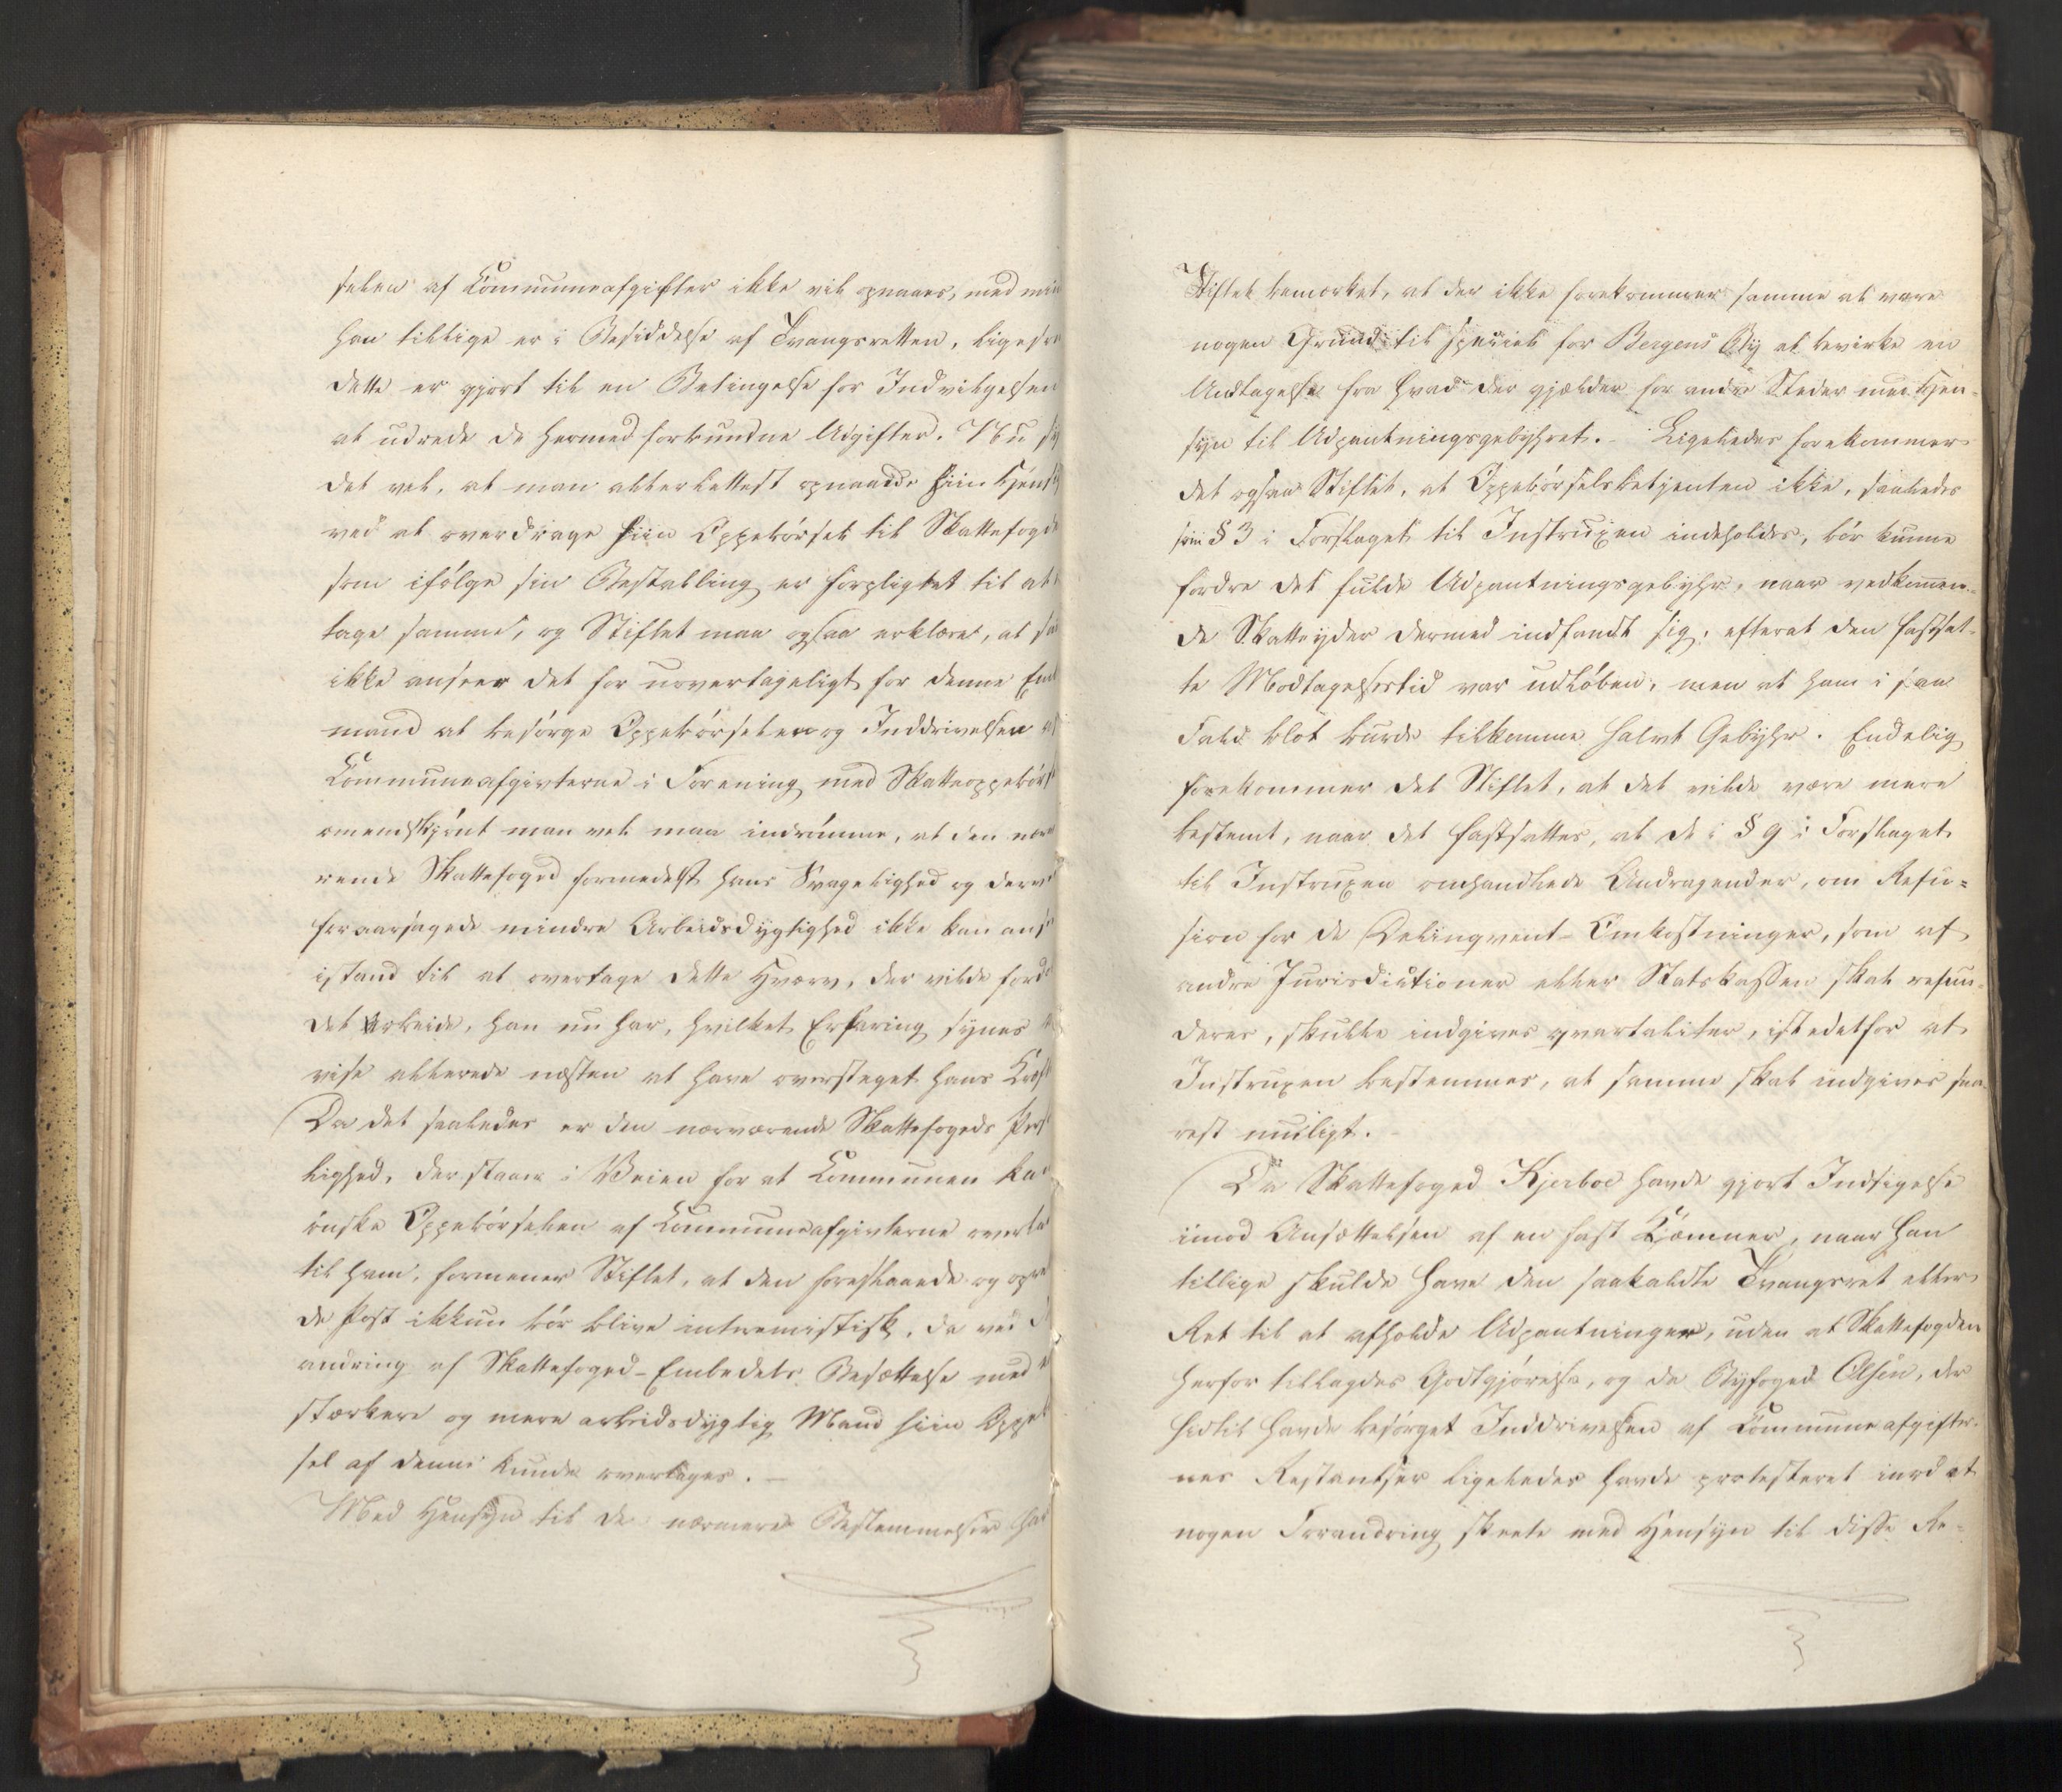 selen af Communeafgifter ikke vil opnaaes, med min
han tillige er i Besiddelse af Tvangsretten, ligesom
dette er gjort til en Betingelse for Indvilgelsen
at udrede de hermed forbundne Udgifter. Nu sy
det vel, at man allerlettest opnaaede hiin Hensigt
ved at overdrage hiin Oppebørsel til Skattefogde
som ifølge sin Bestalling er forpligtet til at
tage samme, og Stiftet maa ogsaa erklære, at saa
ikke anseer det for uovertageligt for denne Em
mand at besørge Oppebørselen og Inddrivelsen af
Communeafgivterne i Forening med Skatteoppebørs
omendskjønt man vel maa indrømme, at den nær
rende Skattefoged formedelst hans Svagelighed og derved
foraarsagede mindre Arbeidsdygtighed ikke kan ans
istand til at overtage dette Hverv, der vilde ford
det Arbeide, han nu har, hvilket Erfaring synes
vise allerede næsten at have oversteget hans Kræft
Da det saaledes er den nærværende Skattefogeds Pers
lighed, der staaer i Veien for at Communen ka
ønske Oppebørselen af Communeafgivterne overla
til ham, formener Stiftet, at den foreslaaede og opre
de Post ikkun bør blive interimistisk, da ved
andring af Skattefoged-Embedets Besættelse med
stærkere og mere arbeidsdygtig Mand hiin Oppeb
sel af denne kunde overtages. —
Med Hensyn til de nærmere Bestemmelser har
Stiftet bemærket, at der ikke forekommer samme at være
nogen Grund til specielt for Bergens By at bevirke en
Undtagelse fra hvad der gjælder for andre Steder med Hen-
syn til Udpantningsgebyhret. - Ligeledes forekommer
det ogsaa Stiftet, at Oppebørselsbetjenten ikke, saaledes
som § 3 i Forslaget til Instruxen indeholder, bør kunne
fordre det fulde Udpantningsgebyhr, naar vedkommen-
de Skatteyder dermed indfandt sig, efterat den fastsat-
te Modtagelsestid var udløben, men at ham i saa
Fald blot burde tilkomme halvt Gebyhr. Endelig
forekommer det Stiftet, at det vilde være mere
bestemt, naar det fastsættes, at de i § 9 i Forslaget
til Instruxen omhandlede Andragender, om Refu-
sion for de Delinqvent-Omkostninger, som af
andre Jurisdictioner eller Statskassen skal refun-
deres, skulle indgives qvartaliter, istedetfor at
Instruxen bestemmer, at samme skal indgives sna-
rest muligt.
Da Skattefoged Kjerboe havde gjort Indsigelse
imod Ansættelsen af en fast Kæmner, naar han
tillige skulde have den saakaldte Tvangsret eller
Ret til at afholde Udpantninger, uden at Skattefogden
herfor tillagdes Godtgjørelse, og da Byfoged Olsen, der
hidtil havde besørget Inddrivelsen af Communeafgifter-
nes Restantser ligeledes havde protesteret imod at
nogen Forandring skeete med Hensyn til disse Re-